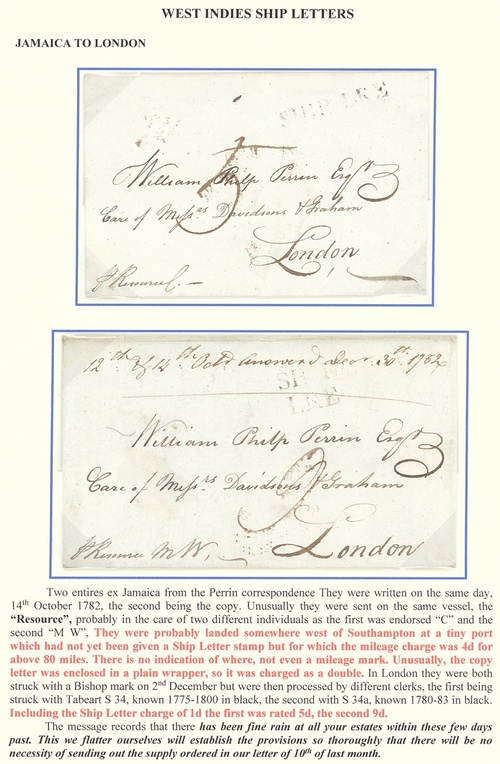 WEST INDIES SHIP LETTERS
JAMAICA TO LONDON
SHIP LRE
5
William Philp Perrin Esqr
Care of Messrs Davidsons & Graham
London
p Resource C.
12th & 14th Octr Answerd Decr 30th 1782
SHIP
LRE
William Philp Perrin Esqr
9
Care of Messrs Davidsons & Graham
p Resource M W,
London
Two entires ex Jamaica from the Perrin correspondence They were written on the same day,
14th October 1782, the second being the copy. Unusually they were sent on the same vessel, the
"Resource", probably in the care of two different individuals as the first was endorsed "C" and the
second "M W", They were probably landed somewhere west of Southampton at a tiny port
which had not yet been given a Ship Letter stamp but for which the mileage charge was 4d for
above 80 miles. There is no indication of where, not even a mileage mark. Unusually, the copy
letter was enclosed in a plain wrapper, so it was charged as a double. In London they were both
struck with a Bishop mark on 2nd December but were then processed by different clerks, the first being
struck with Tabeart S 34, known 1775-1800 in black, the second with S 34a, known 1780-83 in black.
Including the Ship Letter charge of 1d the first was rated 5d, the second 9d.
The message records that there has been fine rain at all your estates within these few days
past. This we flatter ourselves will establish the provisions so thoroughly that there will be no
necessity of sending out the supply ordered in our letter of 10th of last month.